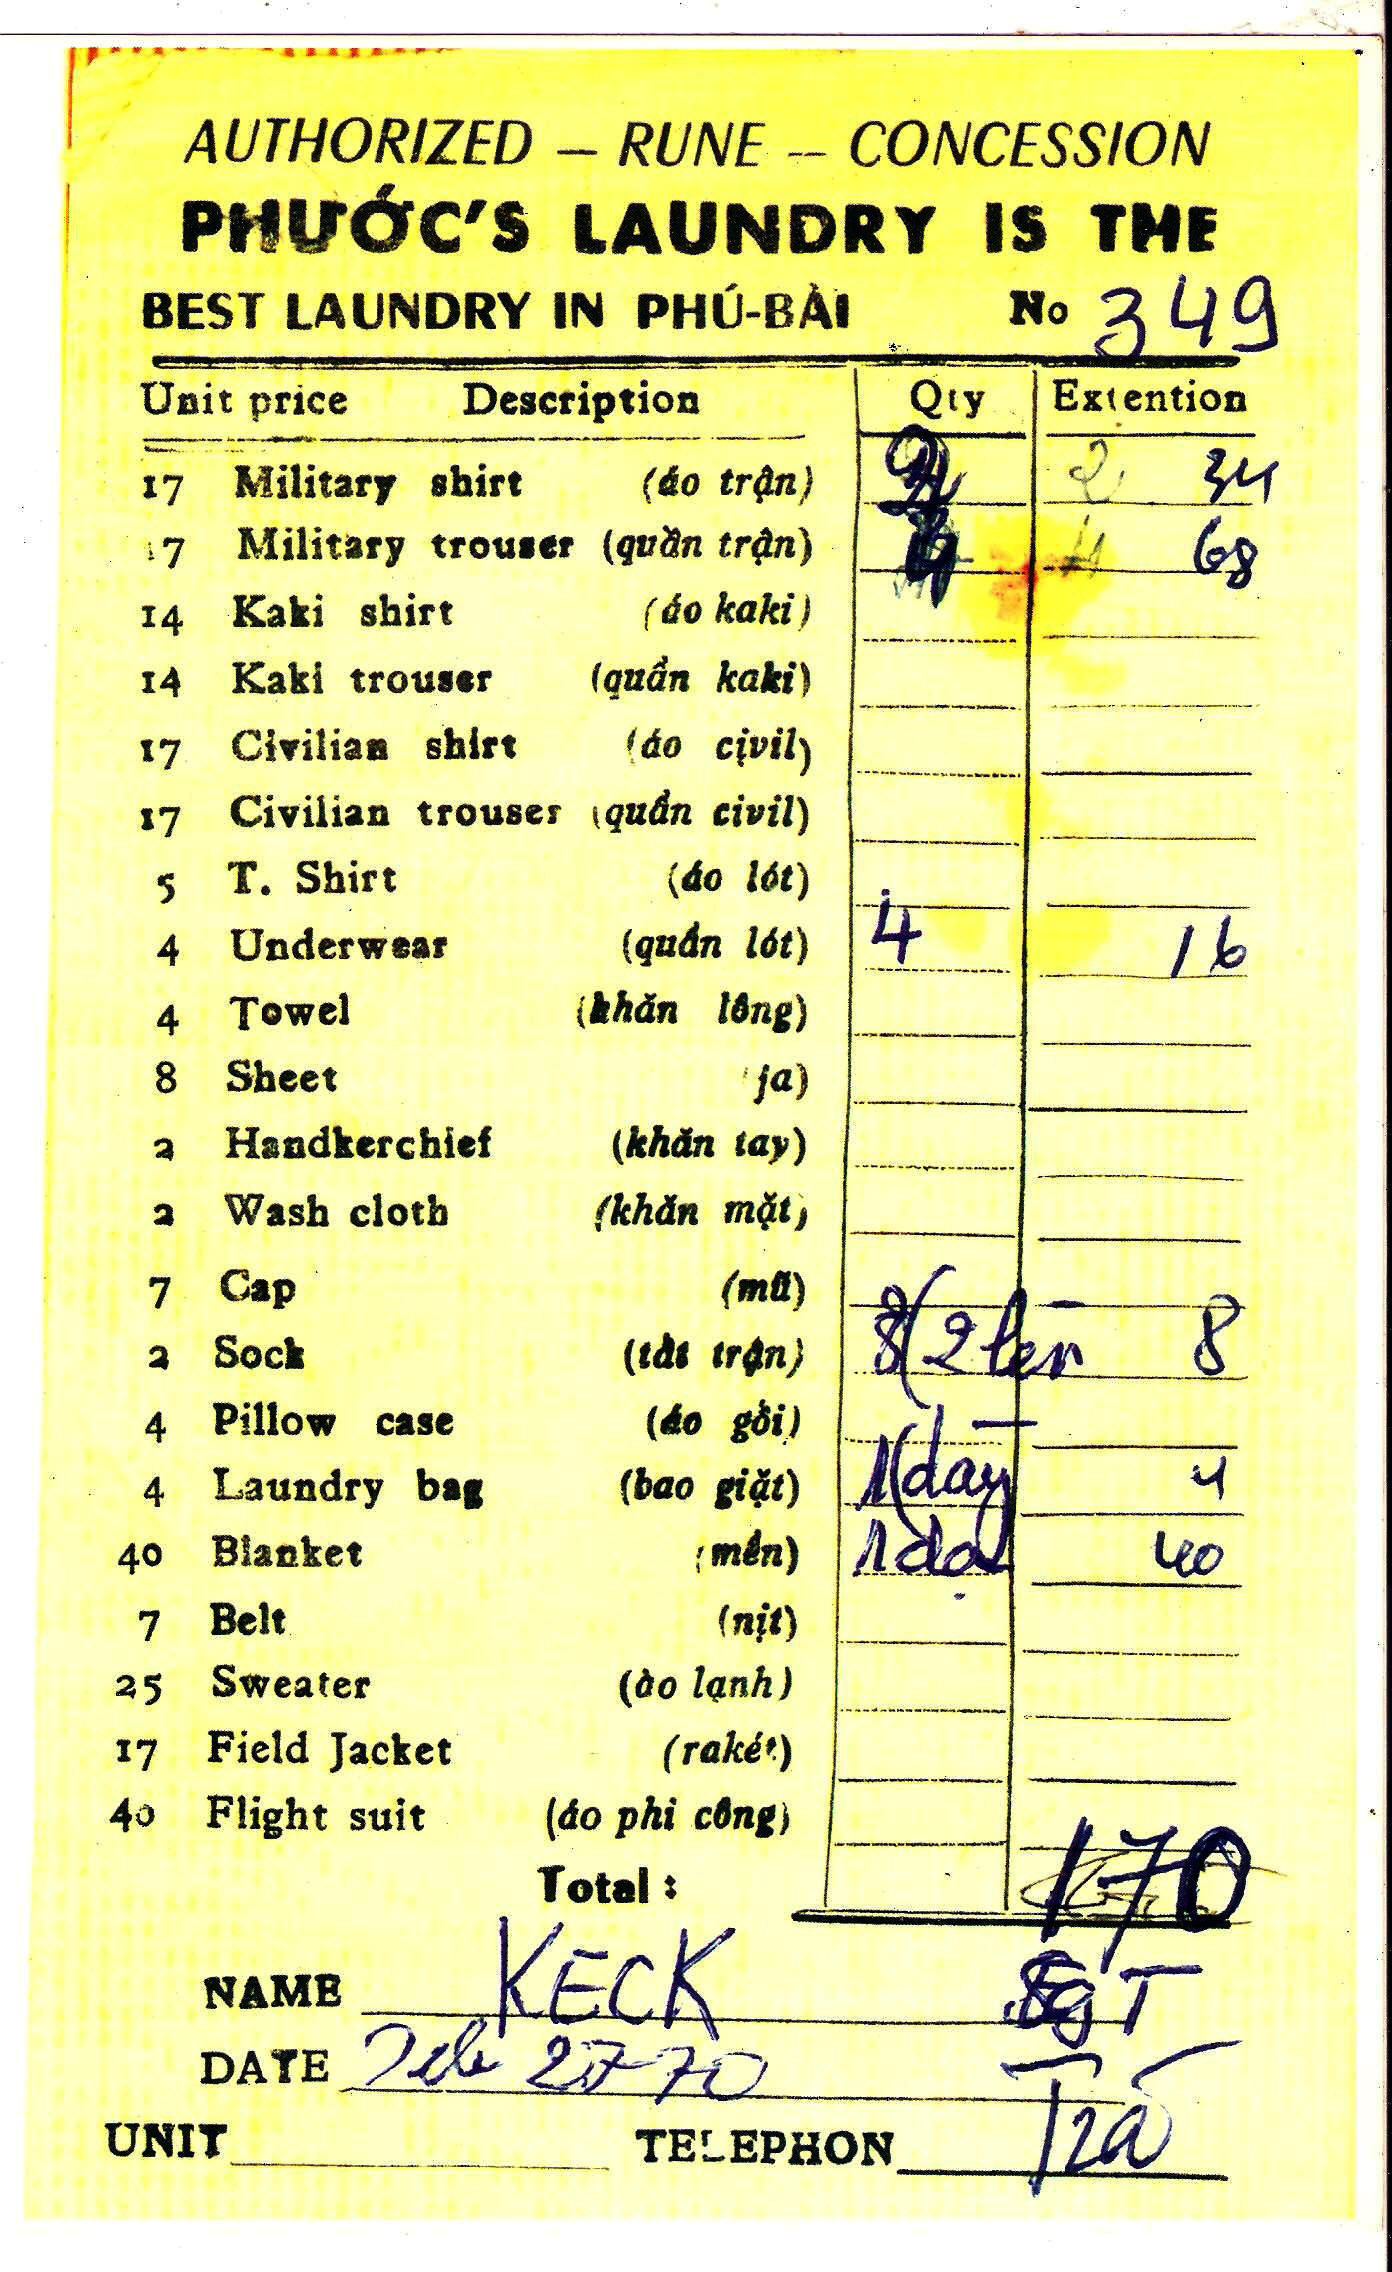 AUTHORIZED – RUNE – CONCESSION
PHƯỚC'S LAUNDRY IS THE
BEST LAUNDRY IN PHÚ-BÀI No 349
Unit price Description Qty Extention
17 Military shirt (áo trận) 2 2 34
17 Military trouser (quần trận) 4 4 68
14 Kaki shirt (áo kaki)
14 Kaki trouser (quần kaki)
17 Civilian shirt (áo civil)
17 Civilian trouser (quần civil)
5 T. Shirt (áo lót)
4 Underwear (quần lót) 4 16
4 Towel (khăn lông)
8 Sheet ja)
2 Handkerchief (khăn tay)
2 Wash cloth (khăn mặt)
7 Cap (mũ)
2 Sock (tất trận) 8 (2 8
4 Pillow case (áo gối)
4 Laundry bag (bao giặt) 1 (day 4
40 Blanket (mền) 1 40
7 Belt (nịt)
25 Sweater (ào lạnh)
17 Field Jacket (rakét)
40 Flight suit (áo phi công)
Total : 170
NAME KECK SgT
DATE Feb 27 70
UNIT TELEPHON